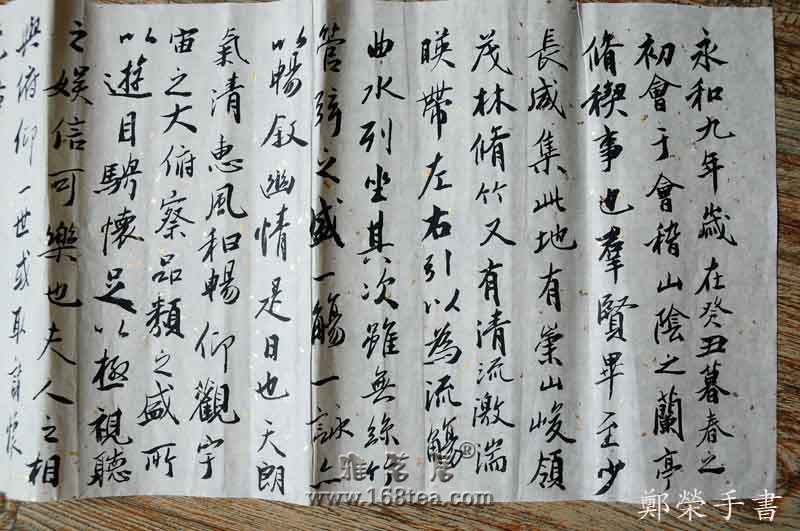 永和九年歲在癸丑暮春之
初會于會稽山陰之蘭亭
脩稧事也羣賢畢至少
長咸集此地有崇山峻領
茂林脩竹又有清流激湍
暎帶左右引以為流觴
曲水列坐其次雖無絲竹
管弦之盛一觴一詠亦
以暢敘幽情是日也天朗
氣清惠風和暢仰觀宇
宙之大俯察品類之盛所
以遊目騁懷足以極視聽
之娛信可樂也夫人之相
與俯仰一世或取諸懷
雅茗居®
www.168tea.com
鄭榮手書